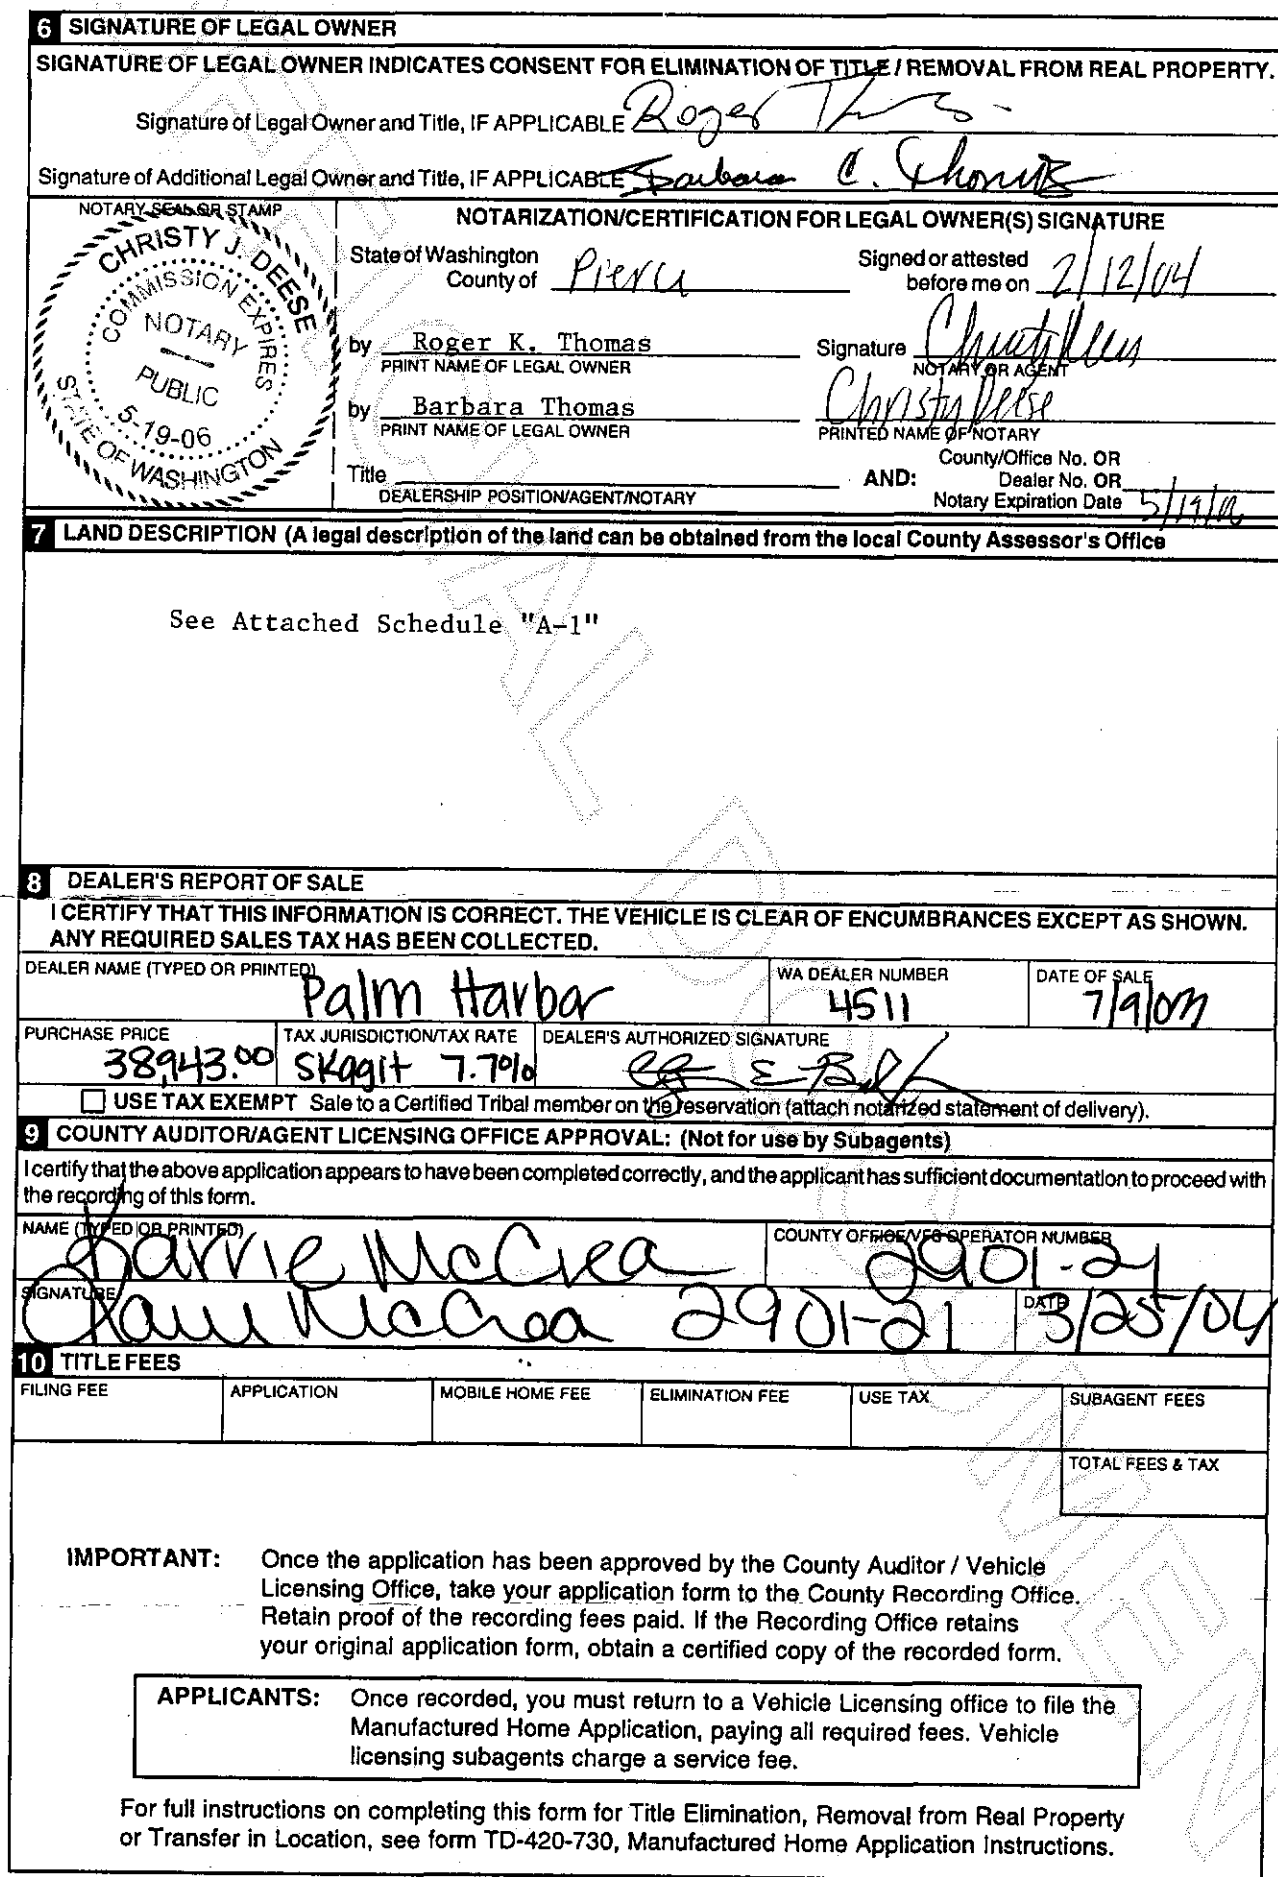 6 SIGNATURE OF LEGAL OWNER
SIGNATURE OF LEGAL OWNER INDICATES CONSENT FOR ELIMINATION OF TITLE / REMOVAL FROM REAL PROPERTY.
Signature of Legal Owner and Title, IF APPLICABLE Roger
Signature of Additional Legal Owner and Title, IF APPLICABLE Barbara C. Thomas
NOTARY SEAL OR STAMP
CHRISTY J. DEESE
COMMISSION EXPIRES
NOTARY
PUBLIC
5-19-06
STATE OF WASHINGTON
NOTARIZATION/CERTIFICATION FOR LEGAL OWNER(S) SIGNATURE
State of Washington
County of Pierce
Signed or attested
before me on 2/12/04
by Roger K. Thomas
PRINT NAME OF LEGAL OWNER
Signature
NOTARY OR AGENT
by Barbara Thomas
PRINT NAME OF LEGAL OWNER
Christy Deese
PRINTED NAME OF NOTARY
Title
DEALERSHIP POSITION/AGENT/NOTARY
AND:
County/Office No. OR
Dealer No. OR
Notary Expiration Date 5/19/06
7 LAND DESCRIPTION (A legal description of the land can be obtained from the local County Assessor's Office
See Attached Schedule "A-1"
8 DEALER'S REPORT OF SALE
I CERTIFY THAT THIS INFORMATION IS CORRECT. THE VEHICLE IS CLEAR OF ENCUMBRANCES EXCEPT AS SHOWN.
ANY REQUIRED SALES TAX HAS BEEN COLLECTED.
DEALER NAME (TYPED OR PRINTED) WA DEALER NUMBER DATE OF SALE
Palm Harbor 4511 7/9/03
PURCHASE PRICE TAX JURISDICTION/TAX RATE DEALER'S AUTHORIZED SIGNATURE
38,943.00 Skagit 7.7%
USE TAX EXEMPT Sale to a Certified Tribal member on the reservation (attach notarized statement of delivery).
9 COUNTY AUDITOR/AGENT LICENSING OFFICE APPROVAL: (Not for use by Subagents)
I certify that the above application appears to have been completed correctly, and the applicant has sufficient documentation to proceed with
the recording of this form.
NAME (TYPED OR PRINTED) COUNTY OFFICE/VFS OPERATOR NUMBER
Karrie McCrea 2901-21
SIGNATURE DATE
Karrie McCrea 2901-21 3/25/04
10 TITLE FEES
FILING FEE APPLICATION MOBILE HOME FEE ELIMINATION FEE USE TAX SUBAGENT FEES
TOTAL FEES & TAX
IMPORTANT: Once the application has been approved by the County Auditor / Vehicle
Licensing Office, take your application form to the County Recording Office.
Retain proof of the recording fees paid. If the Recording Office retains
your original application form, obtain a certified copy of the recorded form.
APPLICANTS: Once recorded, you must return to a Vehicle Licensing office to file the
Manufactured Home Application, paying all required fees. Vehicle
licensing subagents charge a service fee.
For full instructions on completing this form for Title Elimination, Removal from Real Property
or Transfer in Location, see form TD-420-730, Manufactured Home Application Instructions.
UNOFFICIAL DOCUMENT